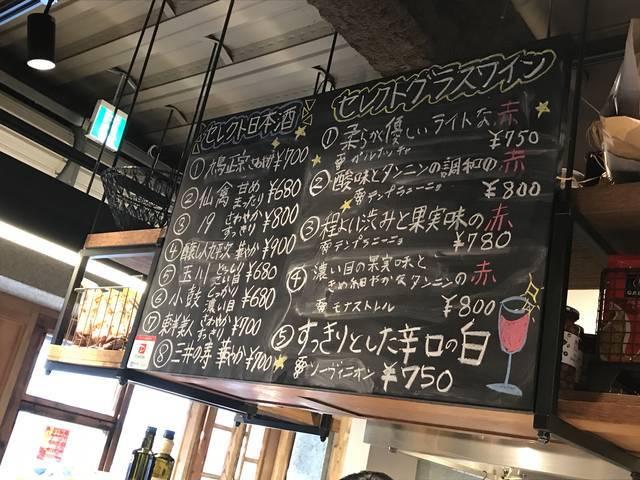 セレクト日本酒
① 鳩正宗 さわやか ¥700
② 仙禽 甘め まったり ¥680
③ 19 さわやか すっきり ¥800
④ 醸し人九平次 華やか ¥900
⑤ 玉川 どっしり こい目 ¥680
⑥ 小鼓 しっかり 濃い目 ¥680
⑦ さわやか すっきり ¥700
⑧ 三井の寿 華やか ¥700
セレクトグラスワイン
① 柔らか優しいライトな赤
¥750
② 酸味とタンニンの調和の赤
テンプラニーニョ ¥800
③ 程よい渋みと果実味の赤
テンプラニーニョ ¥780
④ 濃い目の果実味と
きめ細やかなタンニンの赤
モナストレル ¥800
⑤ すっきりとした辛口の白
ソーヴィニオン ¥750